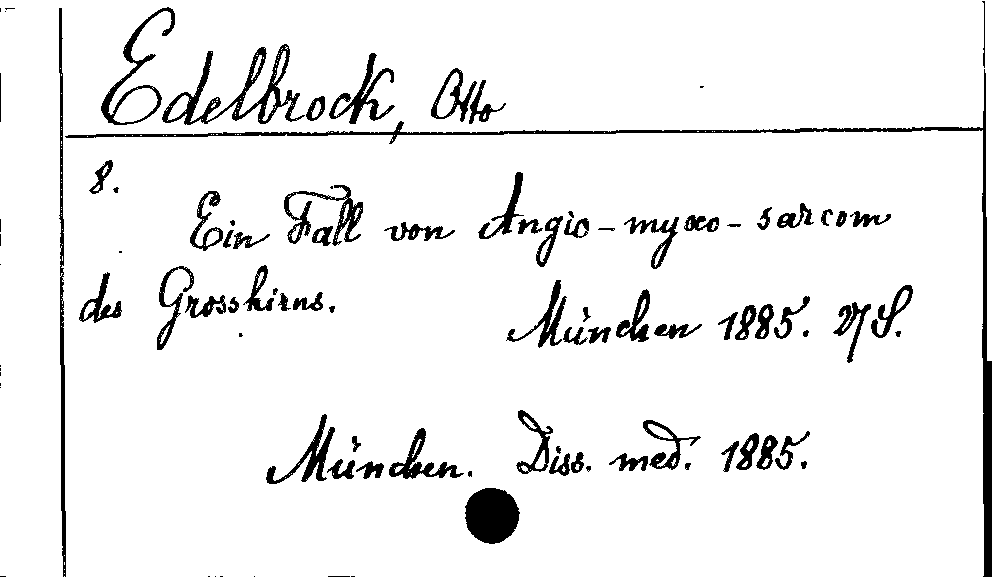 Edelbrock, Otto
8.
Ein Fall von Angio-myxo-sarcom
des Grosshirns.
München 1885. 27 S.
München. Diss. med. 1885.